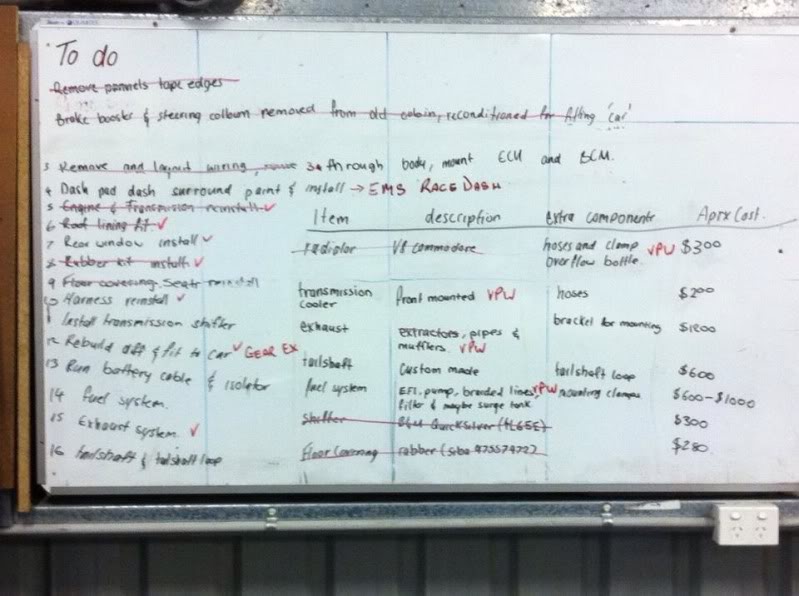 To do
Remove pannels tape edges
Brake booster & steering collumn removed from old cabin, reconditioned for fitting 'car'
3 Remove and layout wiring, through body, mount ECU and BCM.
4 Dash pad dash surround paint & install → EMS RACE DASH
5 Engine & Transmission reinstall ✓
6 Roof lining fit ✓
7 Rear window install ✓
8 Rubber kit install ✓
9 Floor covering. Seats reinstall
10 Harness reinstall ✓
Install transmission shifter
12 Rebuild diff & fit to car ✓ GEAR EX
13 Run battery cable & isolator
14 fuel system.
15 Exhaust system. ✓
16 tailshaft & tailshaft loop
Item description extra components Aprx Cost.
radiator V8 commodore hoses and clamp VPW $300
overflow bottle.
transmission cooler front mounted VPW hoses $200
exhaust extractors, pipes & mufflers. VPW bracket for mounting $1200
tailshaft custom made tailshaft loop $600
fuel system EFI. pump, braided lines, VPW mounting clamps $600-$1000
filter & maybe surge tank
shifter B&M QuickSilver $300
Floor Covering rubber $280